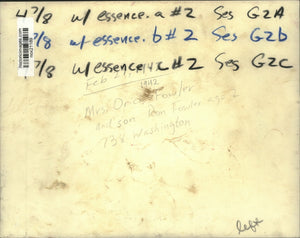 47/8 w/ essence.a #2 Ses G2A
w/ essence.b #2 Ses G2b
7/8 w/ essence #2 Ses G2C
Feb
1942
Mrs Fowler
and son Fowler age 2
738 Washington
left